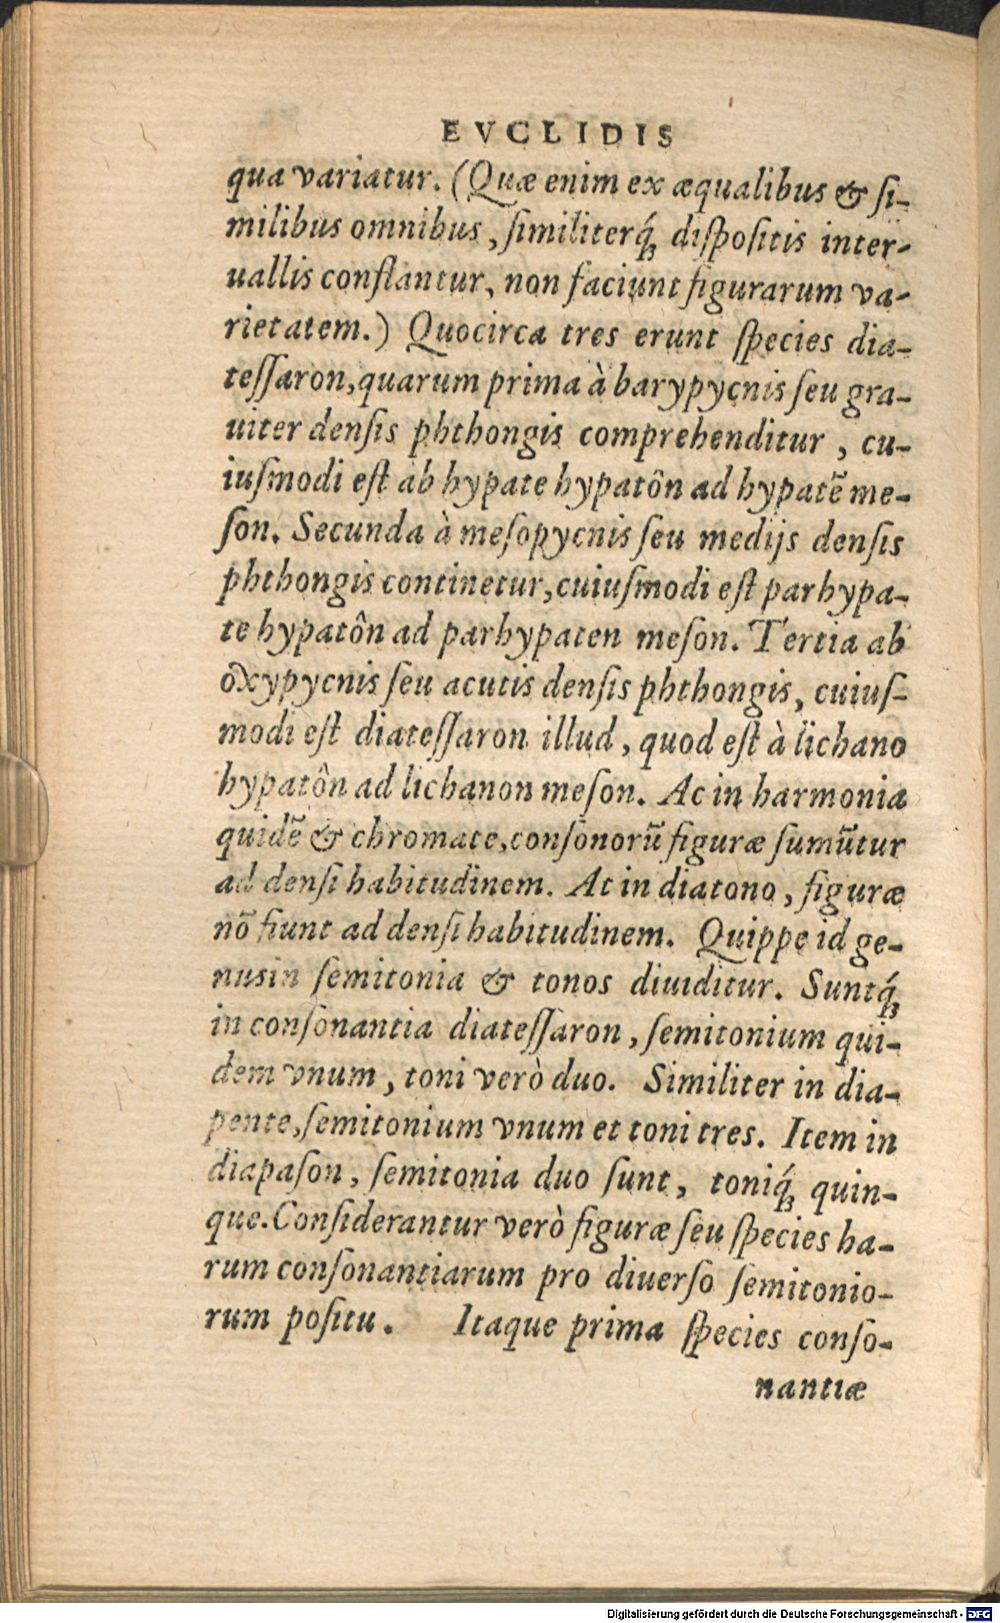 EVCLIDIS
qua variatur. (Quæ enim ex æqualibus & ſi-
milibus omnibus, ſimiliterq́; diſpoſitis inter-
uallis conſtantur, non faciunt figurarum va-
rietatem.) Quocirca tres erunt ſpecies dia-
teſſaron, quarum prima à barypycnis ſeu gra-
uiter denſis phthongis comprehenditur, cu-
iuſmodi eſt ab hypate hypatôn ad hypatẽ me-
ſon. Secunda à meſopycnis ſeu medijs denſis
phthongis continetur, cuiuſmodi eſt parhypa-
te hypatôn ad parhypaten meſon. Tertia ab
oxypycnis ſeu acutis denſis phthongis, cuiuſ-
modi eſt diateſſaron illud, quod eſt à lichano
hypatôn ad lichanon meſon. Ac in harmonia
quidẽ & chromate, conſonorũ figuræ ſumũtur
ad denſi habitudinem. At in diatono, figuræ
nõ fiunt ad denſi habitudinem. Quippe id ge-
nus in ſemitonia & tonos diuiditur. Suntq́;
in conſonantia diateſſaron, ſemitonium qui-
dem vnum, toni verò duo. Similiter in dia-
pente, ſemitonium vnum et toni tres. Item in
diapaſon, ſemitonia duo ſunt, toniq́; quin-
que. Conſiderantur verò figuræ ſeu ſpecies ha-
rum conſonantiarum pro diuerſo ſemitonio-
rum poſitu. Itaque prima ſpecies conſo-
nantiæ
Digitalisierung gefördert durch die Deutsche Forschungsgemeinschaft - DFG